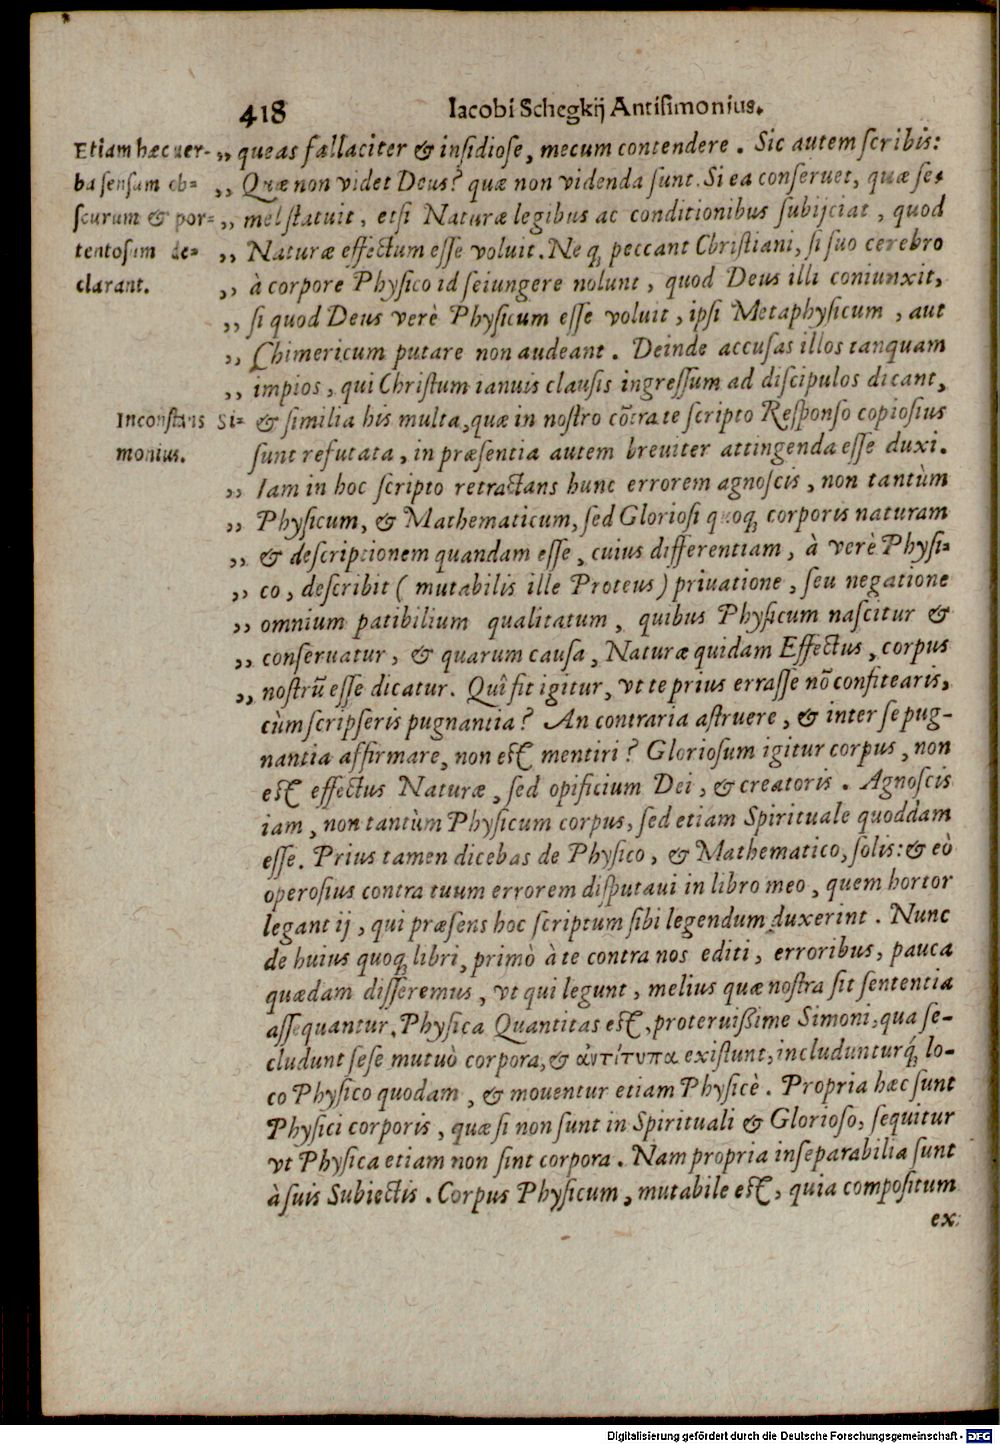 418 Iacobi Schegkij Antisimonius.
Etiam hæc uer-
ba sensum ob-
scurum & por-
tentosum de-
clarant.
Inconstans Si-
monius.
„ que as fallaciter & insidiose, mecum contendere. Sic autem scribis:
„ Quæ non videt Deus? quæ non videnda sunt. Si ea conseruet, quæ se-
„ mel statuit, etsi Naturæ legibus ac conditionibus subijciat, quod
„ Naturæ effectum esse voluit. Ne q; peccant Christiani, si suo cerebro
„ à corpore Physico id seiungere nolunt, quod Deus illi coniunxit,
„ si quod Deus verè Physicum esse voluit, ipsi Metaphysicum, aut
„ Chimericum putare non audeant. Deinde accusas illos tanquam
„ impios, qui Christum ianuis clausis ingressum ad discipulos dicant,
& similia his multa, quæ in nostro cõtra te scripto Responso copiosius
sunt refutata, in præsentia autem breuiter attingenda esse duxi.
„ Iam in hoc scripto retractans hunc errorem agnoscis, non tantùm
„ Physicum, & Mathematicum, sed Gloriosi quoq; corporis naturam
„ & descriptionem quandam esse, cuius differentiam, à verè Physi-
„ co, describit ( mutabilis ille Proteus ) priuatione, seu negatione
„ omnium patibilium qualitatum, quibus Physicum nascitur &
„ conseruatur, & quarum causa, Naturæ quidam Effectus, corpus
„ nostrũ esse dicatur. Quî fit igitur, vt te prius errasse nõ confitearis,
cùm scripseris pugnantia? An contraria astruere, & inter se pug-
nantia affirmare, non est mentiri? Gloriosum igitur corpus, non
est effectus Naturæ, sed opificium Dei, & creatoris. Agnoscis
iam, non tantùm Physicum corpus, sed etiam Spirituale quoddam
esse. Prius tamen dicebas de Physico, & Mathematico, solis: & eò
operosius contra tuum errorem disputaui in libro meo, quem hortor
legant ij, qui præsens hoc scriptum sibi legendum duxerint. Nunc
de huius quoq; libri, primò à te contra nos editi, erroribus, pauca
quædam disseremus, vt qui legunt, melius quæ nostra sit sententia
assequantur. Physica Quantitas est, proteruißime Simoni, qua se-
cludunt sese mutuò corpora, & ἀντίτυπα existunt, includunturq́; lo-
co Physico quodam, & mouentur etiam Physicè. Propria hæc sunt
Physici corporis, quæ si non sunt in Spirituali & Glorioso, sequitur
vt Physica etiam non sint corpora. Nam propria inseparabilia sunt
à suis Subiectis. Corpus Physicum, mutabile est, quia compositum
ex
Digitalisierung gefördert durch die Deutsche Forschungsgemeinschaft - DFG